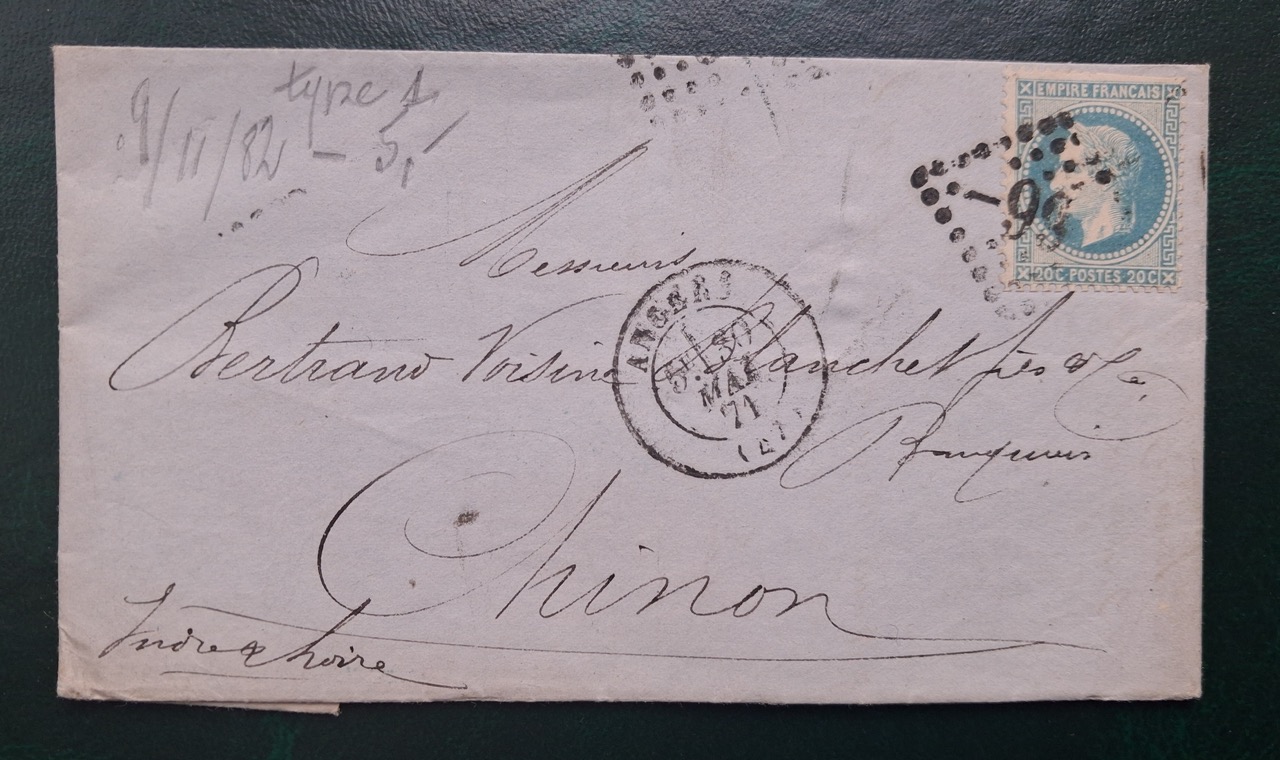 type 1
9/II/82 - 5,-
EMPIRE FRANÇAIS
20C·POSTES 20C
99
Messieurs
Bertrand Voisine Blanchet fils & Cie
Banquiers
ANGERS
5E 30
MAI
71
(47)
Chinon
Indre & Loire